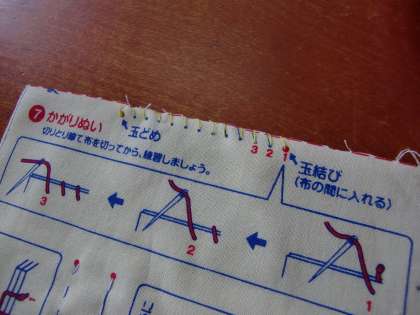 ⑦かがりぬい
玉どめ
3 2 1
切りとり線で布を切ってから、練習しましょう。
玉結び
(布の間に入れる)
3
2
1